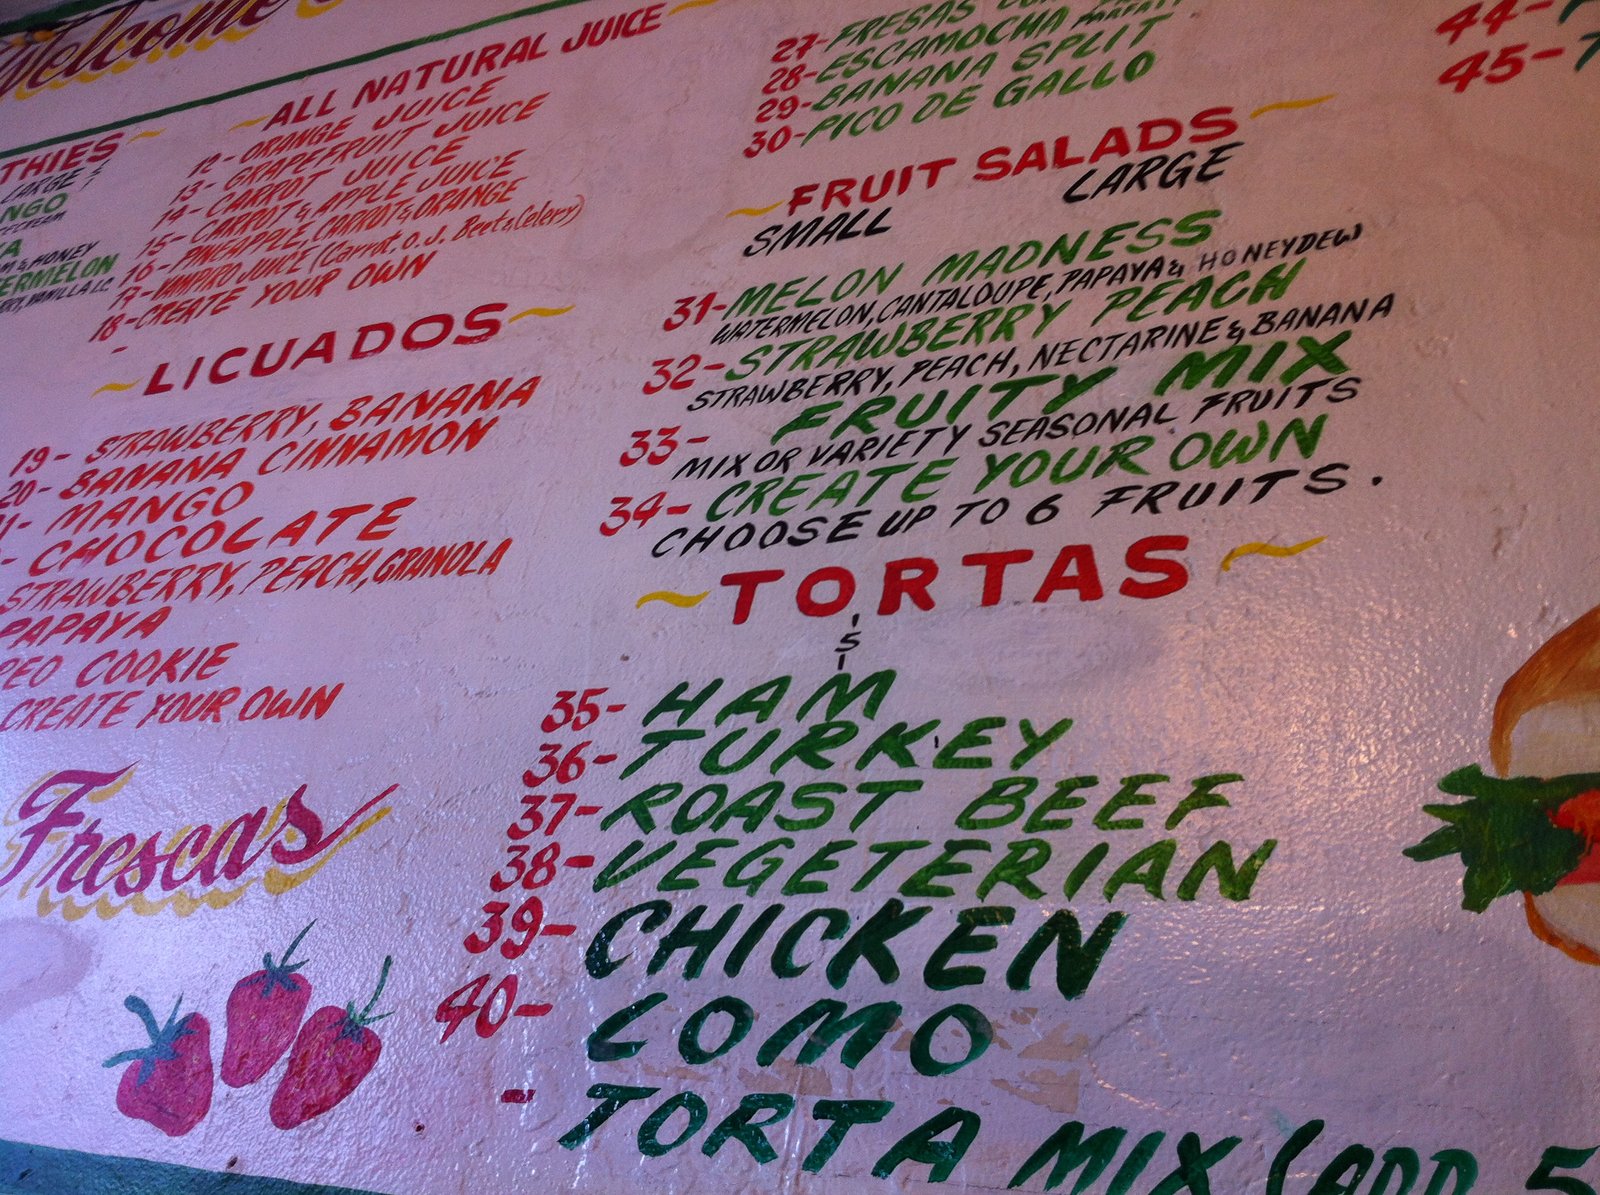 Welcome
THIES
LARGE
NGO
ICECREAM
A
M & HONEY
ERMELON
RRY, VANILLA I.C.
~ALL NATURAL JUICE~
12- ORANGE JUICE
13- GRAPEFRUIT JUICE
14- CARROT JUICE
15- CARROT & APPLE JUICE
16- PINEAPPLE, CARROT & ORANGE
17- VAMPIRO JUICE (Carrot, O.J. Beet & Celery)
18- CREATE YOUR OWN
-
~LICUADOS~
19- STRAWBERRY, BANANA
20- BANANA CINNAMON
1- MANGO
- CHOCOLATE
STRAWBERRY, PEACH, GRANOLA
PAPAYA
PEO COOKIE
CREATE YOUR OWN
Frescas
27- FRESAS
28- ESCAMOCHA PARFAIT
29- BANANA SPLIT
30- PICO DE GALLO
~FRUIT SALADS~
SMALL LARGE
31- MELON MADNESS
WATERMELON, CANTALOUPE, PAPAYA & HONEYDEW
32- STRAWBERRY PEACH
STRAWBERRY, PEACH, NECTARINE & BANANA
33- FRUITY MIX
MIX OR VARIETY SEASONAL FRUITS
34- CREATE YOUR OWN
CHOOSE UP TO 6 FRUITS.
~TORTAS~
$
35- HAM
36- TURKEY
37- ROAST BEEF
38- VEGETERIAN
39- CHICKEN
40- LOMO
- TORTA MIX (ADD 5
44-
45-